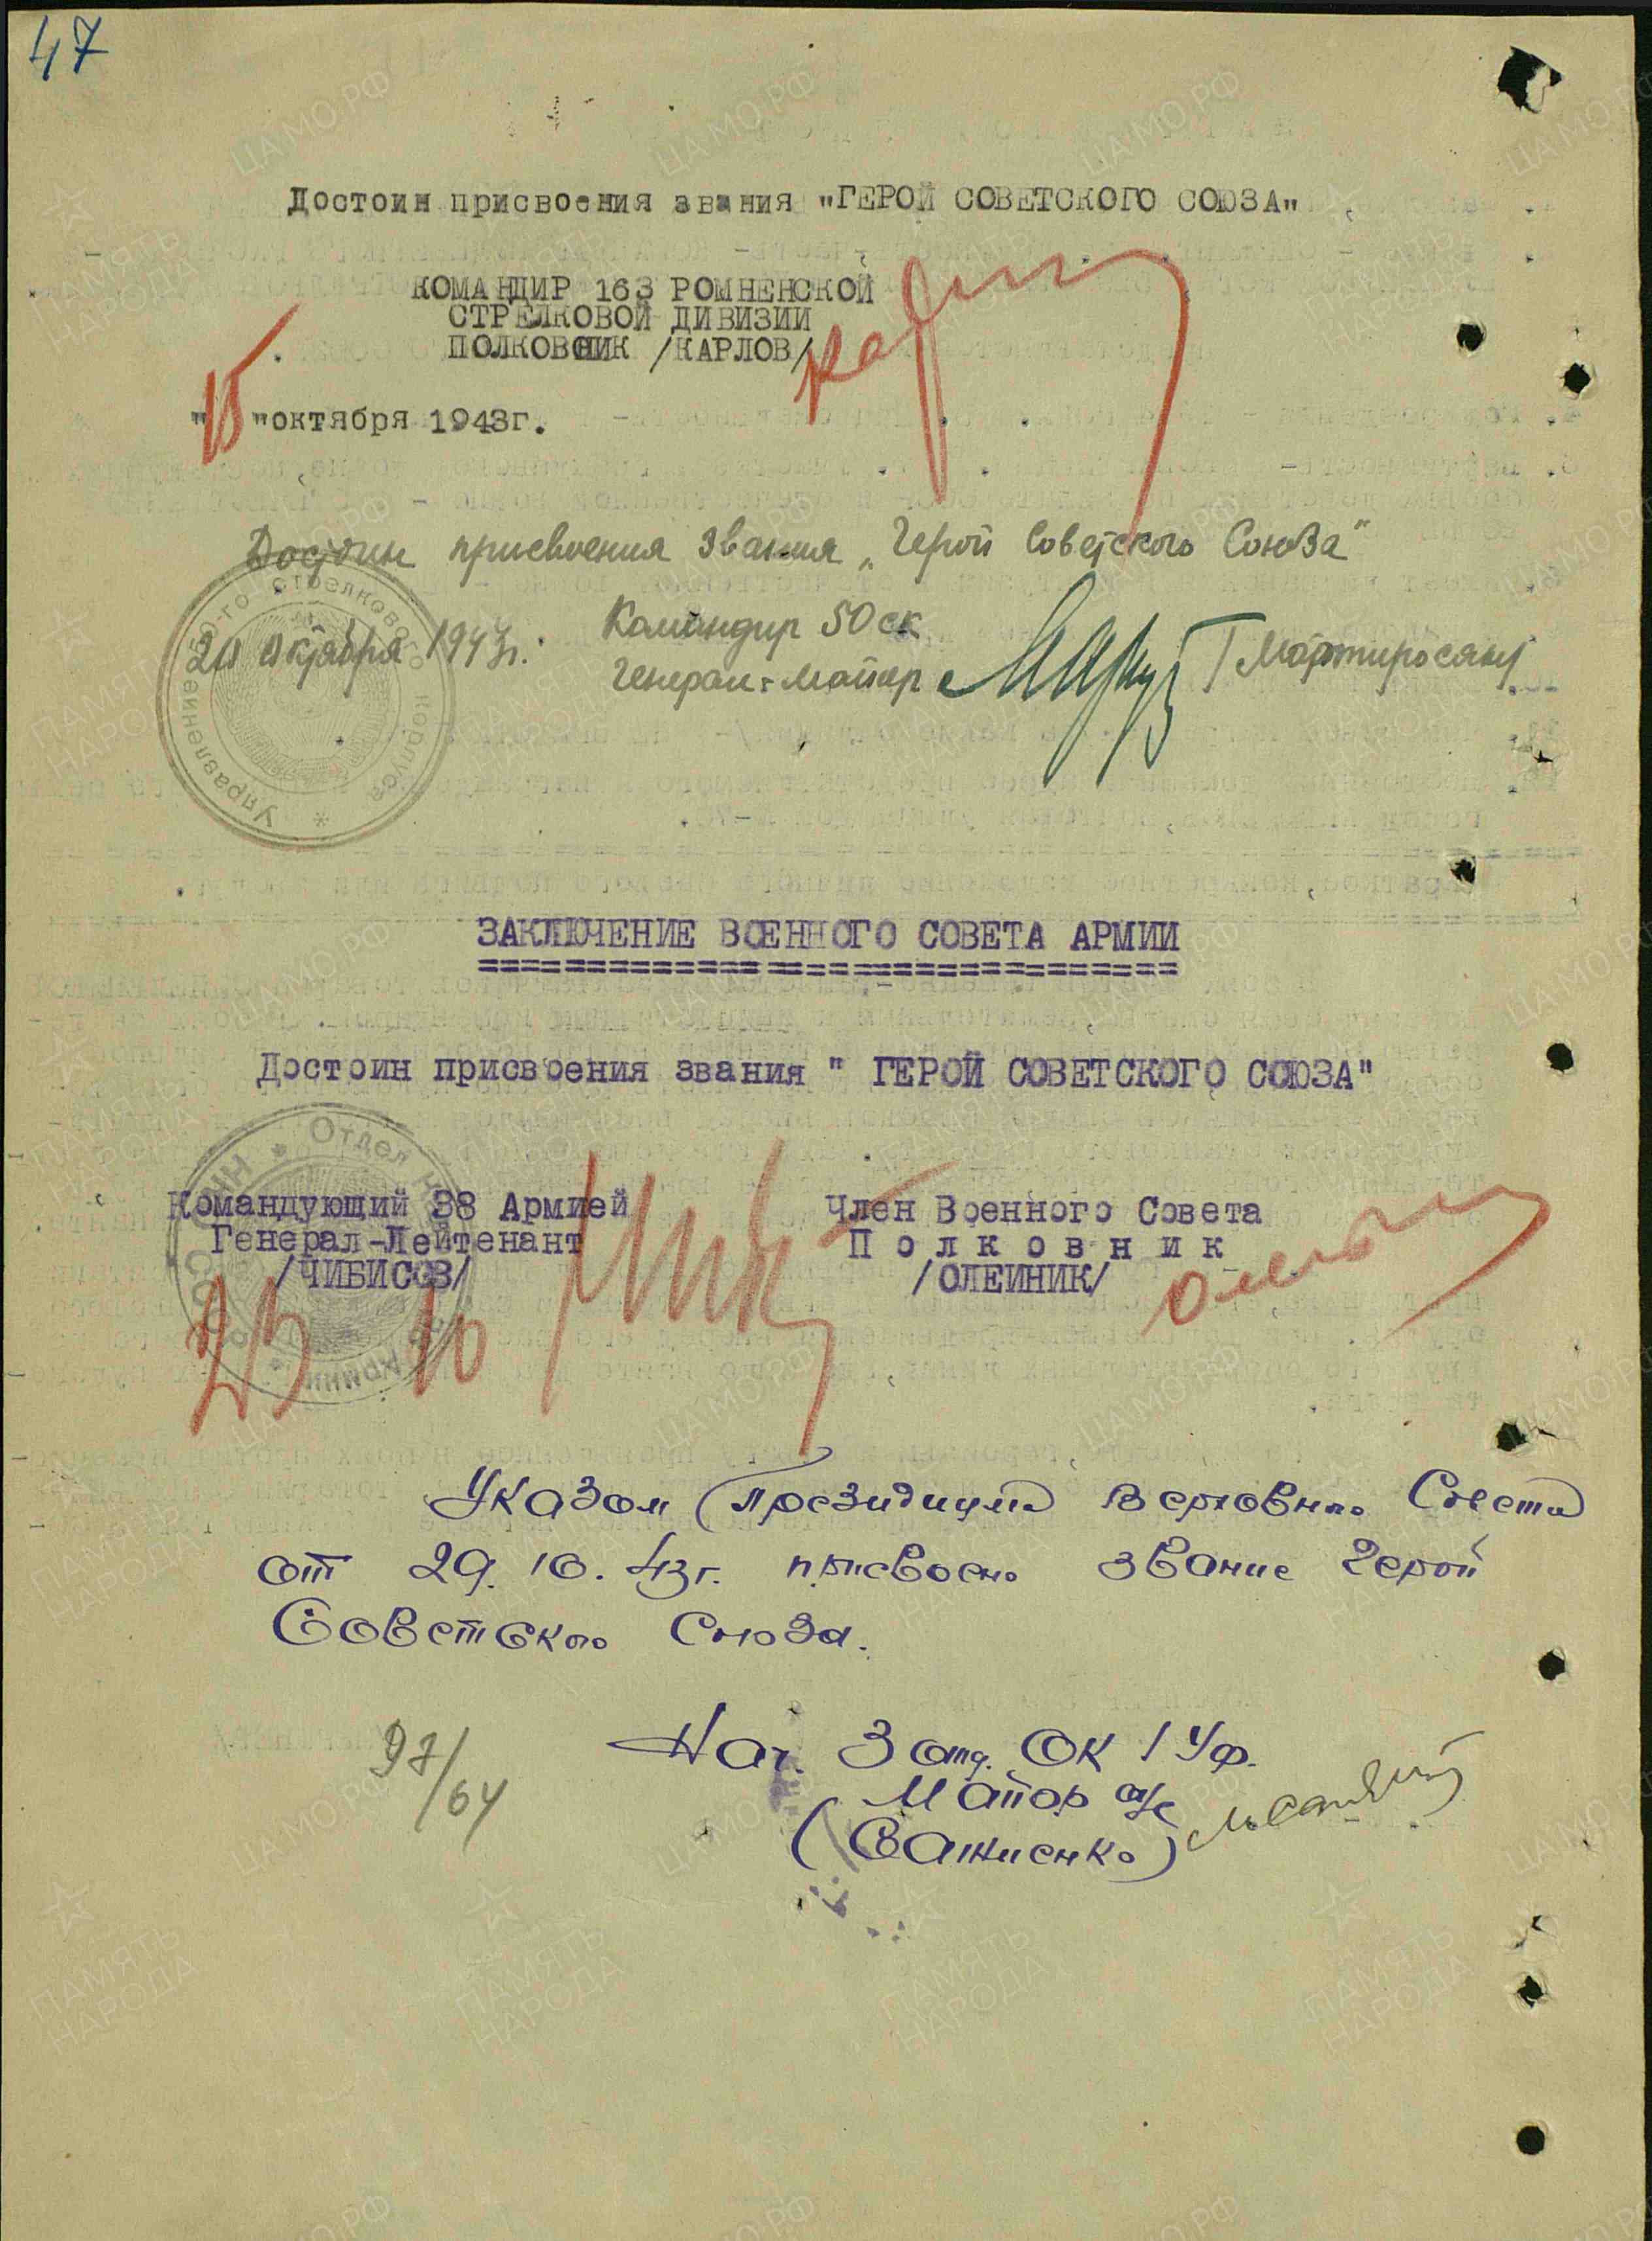 47
Достоин присвоения звания "ГЕРОЙ СОВЕТСКОГО СОЮЗА"
КОМАНДИР 163 РОМНЕНСКОЙ
СТРЕЛКОВОЙ ДИВИЗИИ
ПОЛКОВНИК /КАРЛОВ/
"15"октября 1943г.
Достоин присвоения звания „Герой Советского Союза"
20 октября 1943г.
Командир 50 ск
Генерал-майор
/Мартиросян/
Управление 50-го стрелкового корпуса
ЗАКЛЮЧЕНИЕ ВОЕННОГО СОВЕТА АРМИИ
Достоин присвоения звания " ГЕРОЙ СОВЕТСКОГО СОЮЗА"
Командующий 38 Армией
Генерал-Лейтенант
/ЧИБИСОВ/
Член Военного Совета
Полковник
/ОЛЕЙНИК/
23 10
Указом Президиума Верховного Совета
от 29.10.43г. присвоено звание Герой
Советского Союза.
Нач. 3 отд. ОК 1 Уф.
Майор а/с
97/64
ПАМЯТЬ НАРОДА
ЦАМО.РФ